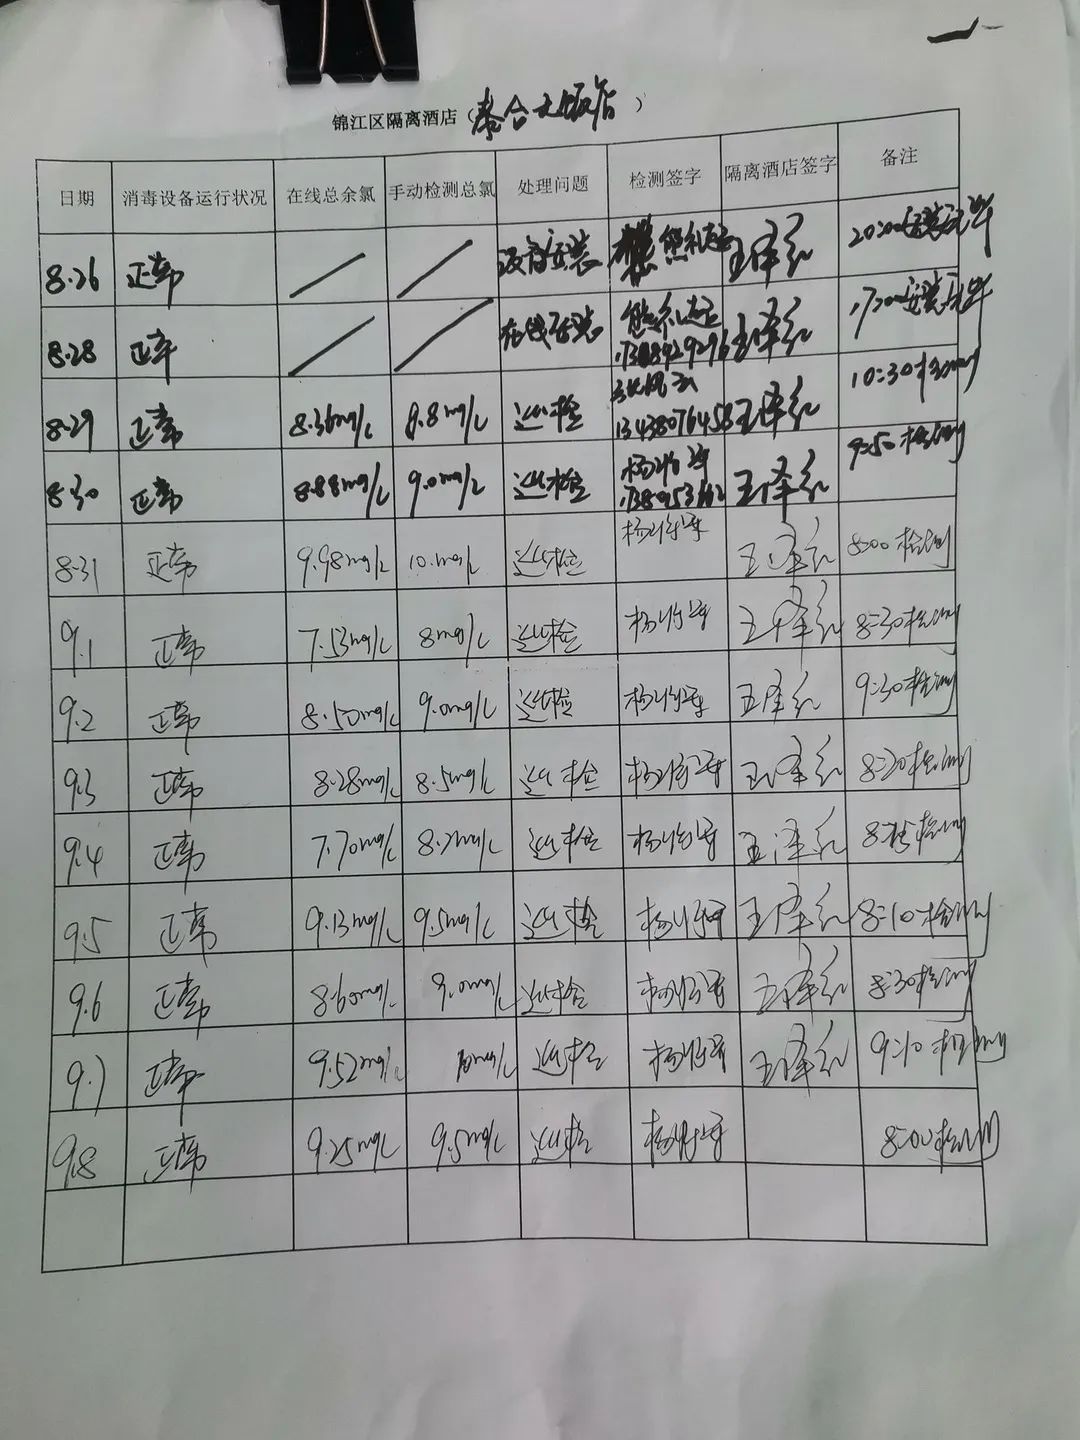 锦江区隔离酒店(泰合大饭店)
日期 消毒设备运行状况 在线总余氯 手动检测总氯 处理问题 检测签字 隔离酒店签字 备注
8.26 正常 / / 设备安装 王泽红 20:00安装完毕
8.28 正常 / / 在线安装 王泽红 17:00安装完毕
8.29 正常 8.36mg/L 9.8mg/L 巡检 13438076458 王泽红 10:30检测
8.30 正常 8.88mg/L 9.0mg/L 巡检 王泽红 9:50检测
8.31 正常 9.98mg/L 10.mg/L 巡检 王泽红 8:00检测
9.1 正常 7.53mg/L 8mg/L 巡检 王泽红 8:30检测
9.2 正常 8.50mg/L 9.0mg/L 巡检 王泽红 9:30检测
9.3 正常 8.28mg/L 8.5mg/L 巡检 王泽红 8:20检测
9.4 正常 7.70mg/L 8.2mg/L 巡检 王泽红 检测
9.5 正常 9.13mg/L 9.5mg/L 巡检 王泽红 8:10检测
9.6 正常 8.60mg/L 9.0mg/L 巡检 王泽红 8:30检测
9.7 正常 9.52mg/L 10mg/L 巡检 王泽红 9:10检测
9.8 正常 9.25mg/L 9.5mg/L 巡检 8:00检测